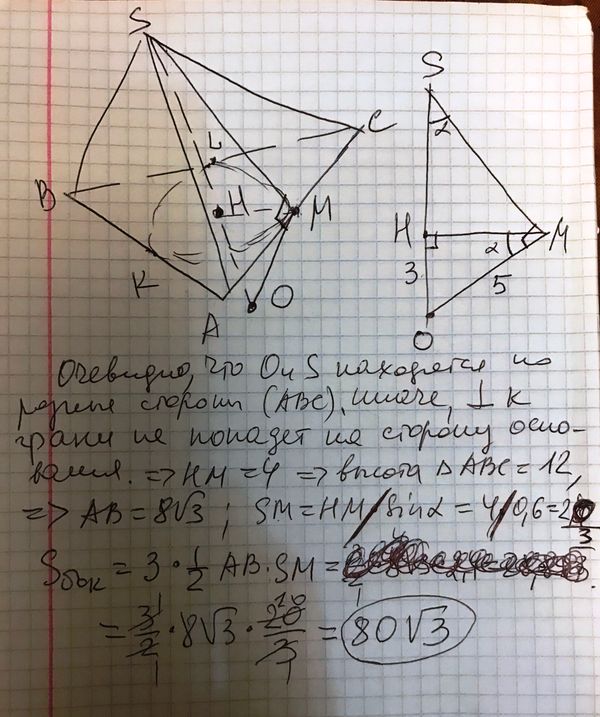 S
B
L
C
H
M
K
A
O
S
α
H
α
M
3
5
O
Очевидно, что O и S находятся по
разные стороны (ABC), иначе, ⊥ к
грани не попадет на сторону осно-
вания. => HM = 4 => высота △ABC = 12,
=> AB = 8√3 ; SM = HM/sinα = 4/0,6 = 20/3
Sбок = 3 · 1/2 AB · SM =
= 3/2 · 8√3 · 20/3 = 80√3